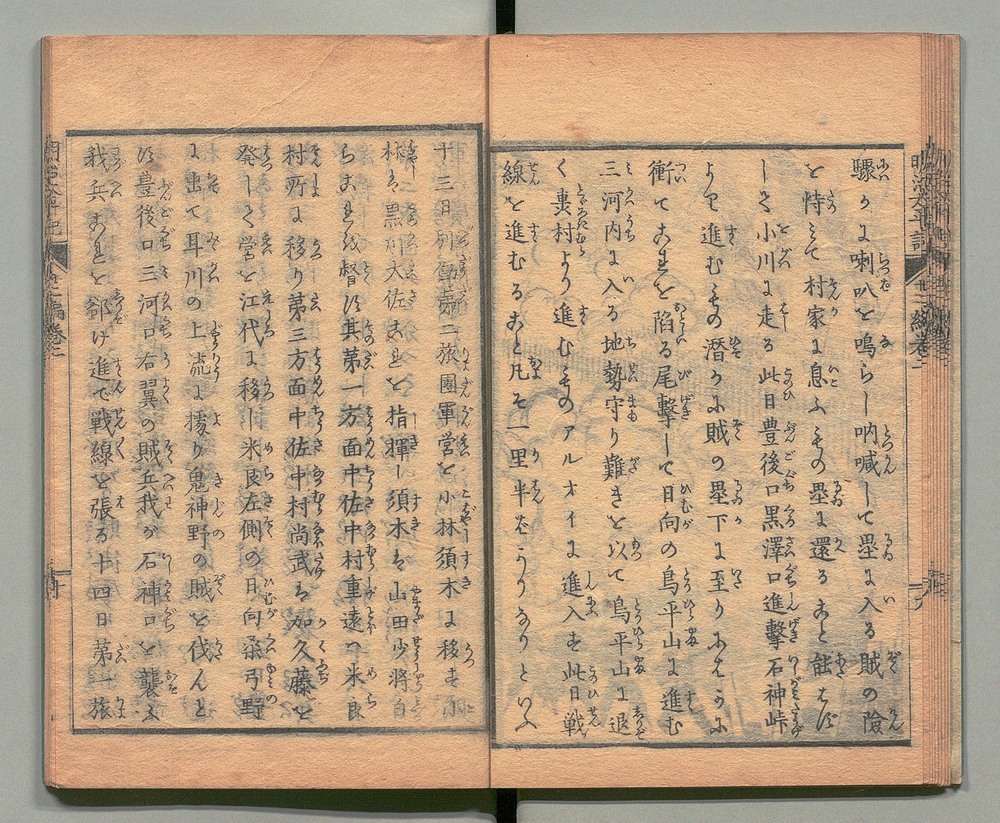 驟かに喇叭を鳴らし吶喊して塁に入る賊の険
を恃みて村家に息ふもの塁に還ること能はず
して小川に走る此日豊後口黒澤口進撃石神峠
より進むもの潜かに賊の塁下に至り
衝てこれを陥る尾撃して日向の烏平山に進む
三河内に入る地勢守り難きを以て烏平山に退
く奥村より進むものアルオイに進入す此日戦
線を進むること凡そ一里半なりといふ
十三日別働第二旅團軍営を小林須木に移す
林は黒川大佐これを指揮し須木は山田少将自
らこれを督す其第一方面中佐中村重遠は米良
村所に移り第三方面中佐中村尚武は加久藤を
発して営を江代に移し米良左側の日向
に出て耳川の上流に據り鬼神野の賊を伐んと
す豊後口三河口右翼の賊兵我が石神口を襲ふ
我兵これを郤け進で戦線を張る十四日第一旅
明治太平記